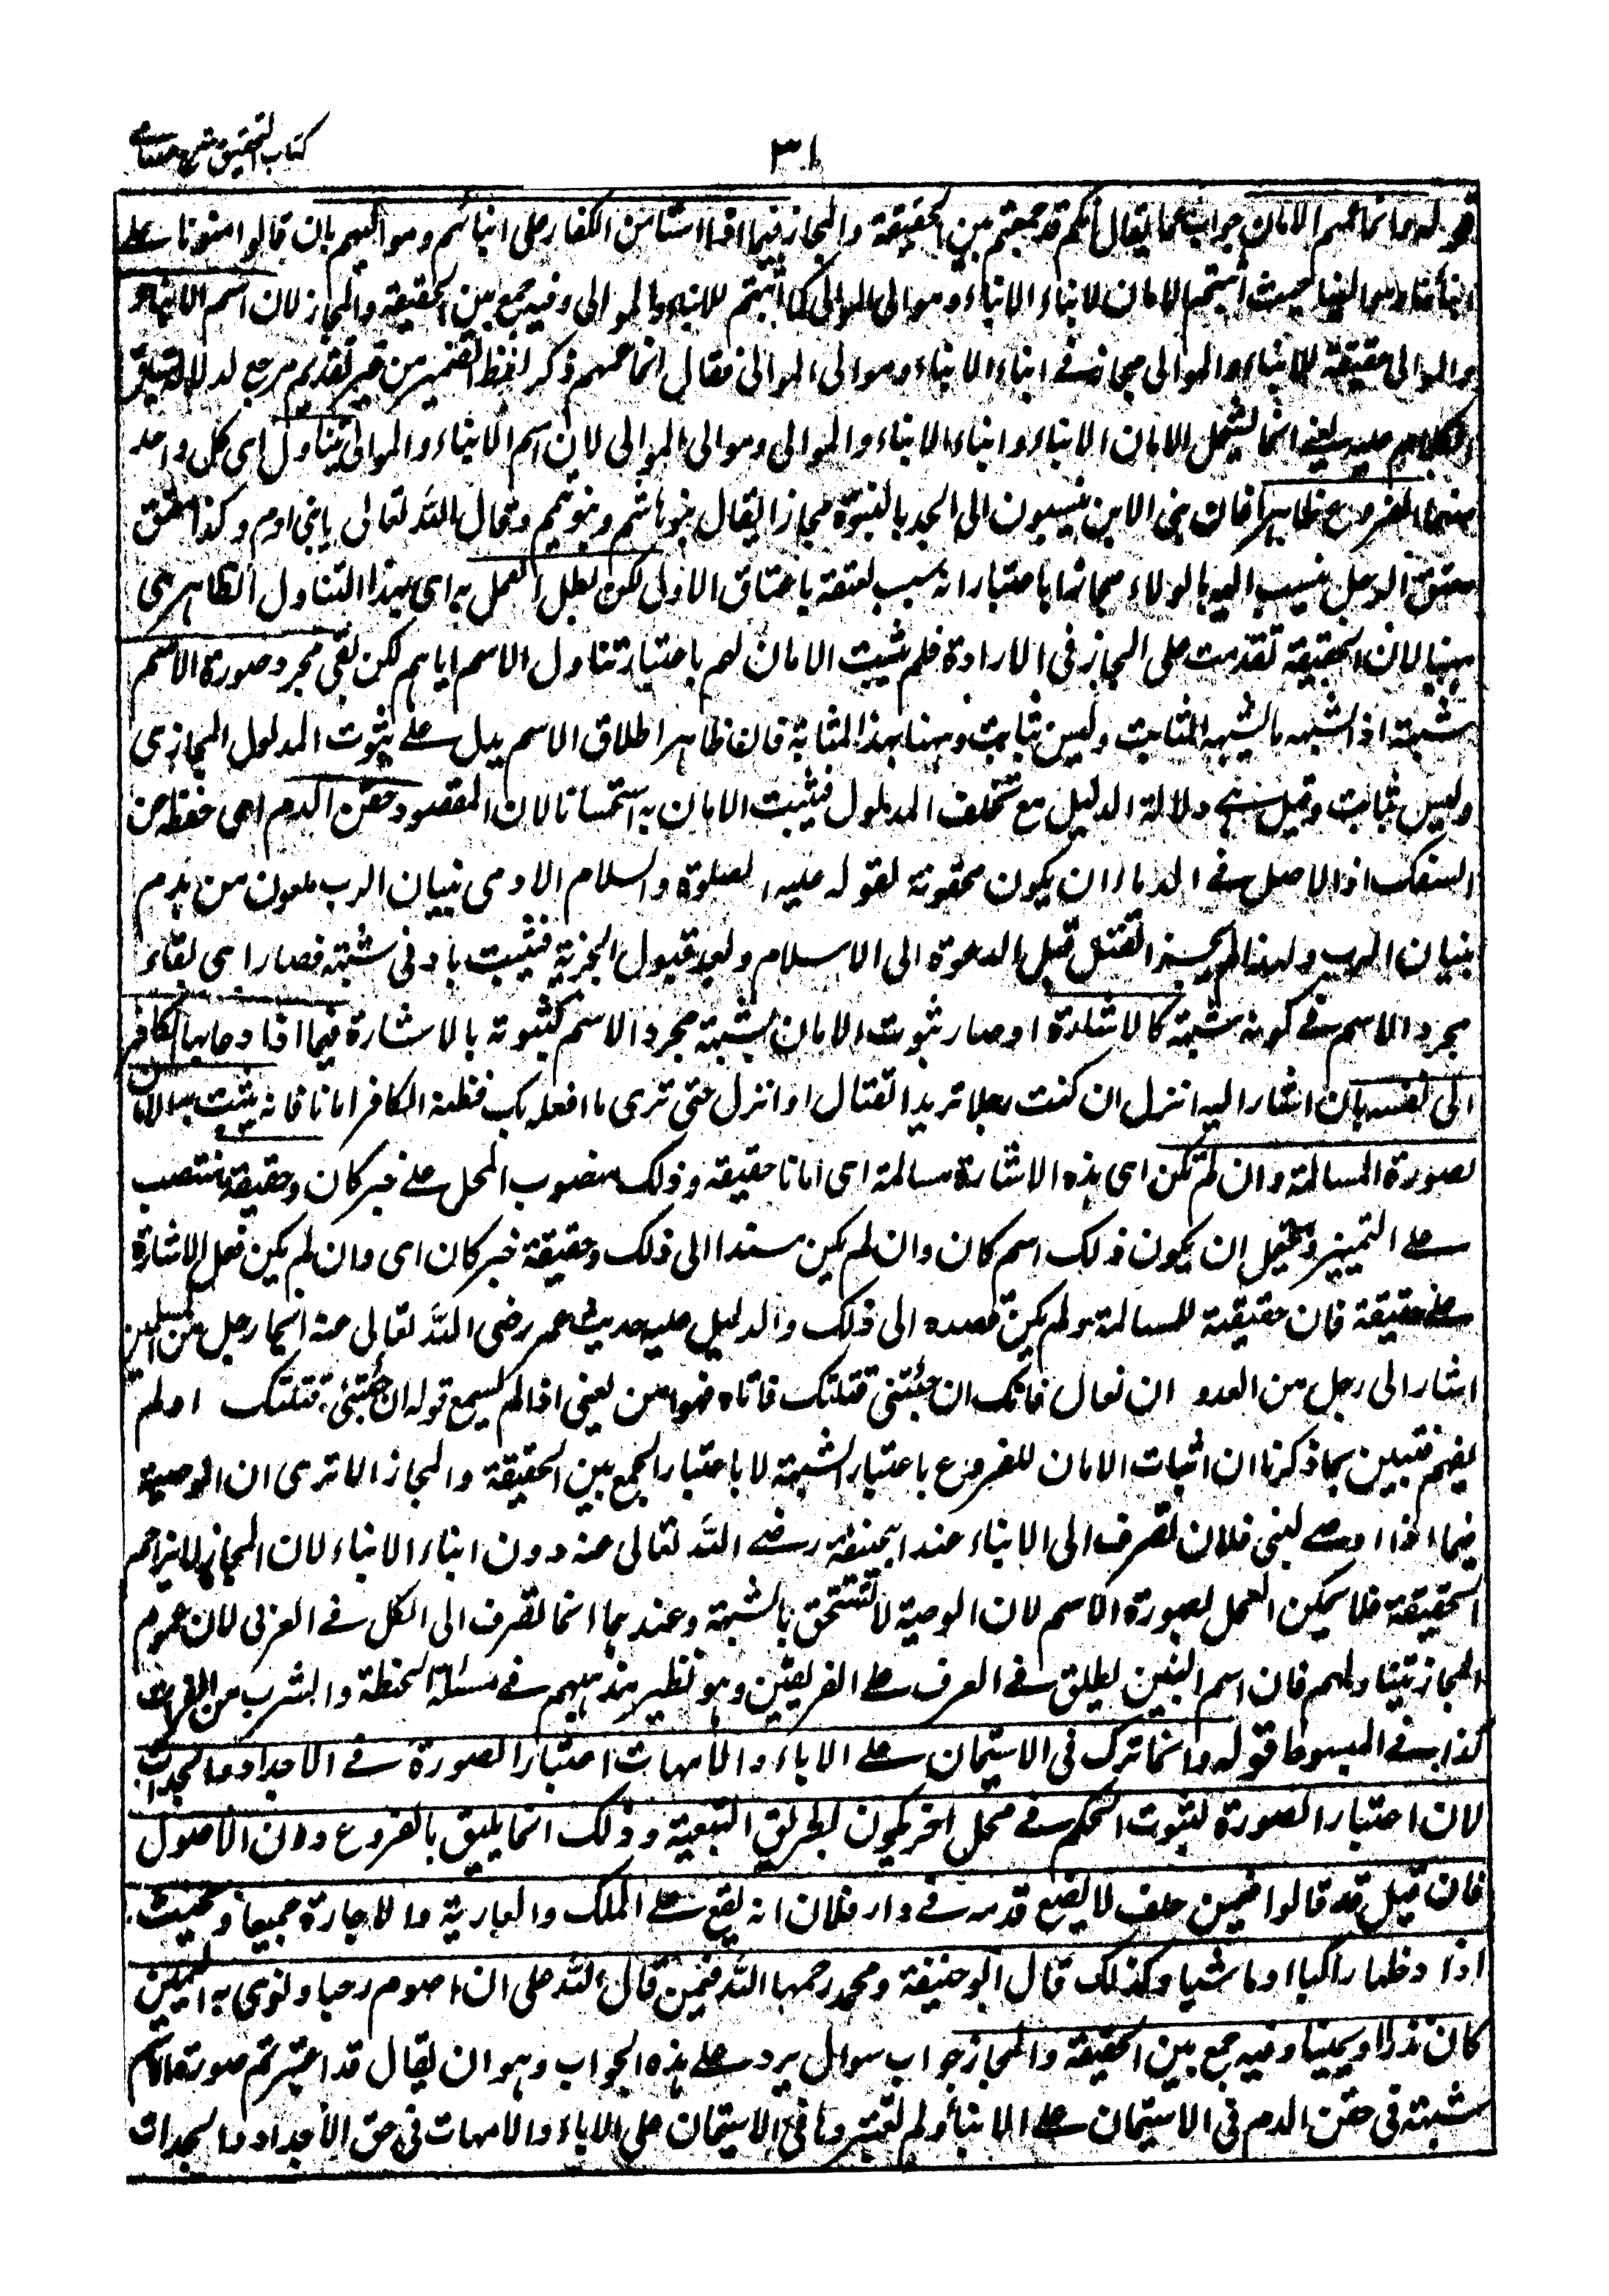 كتاب التحقيق شرح حسامی
٣١
قوله وانما عمهم الامان جواب عما يقال انكم قد جمعتم بين الحقيقة والمجاز فيما اذا استامن الكفار على ابنائهم ومواليهم بان قالوا امنونا على
ابنائنا وموالينا حيث اثبتم الامان لابناء الابناء وموالى الموالى كما اثبتم للابناء والموالى وفيه جمع بين الحقيقة والمجاز لان اسم الابناء
والموالى حقيقة للابناء والموالى مجاز فى ابناء الابناء وموالى الموالى فقال انما عمهم ذكر لفظ الضمير من غير تقديم مرجع لدلالة سياق
الكلام عليه يعنى انما يشمل الامان الابناء وابناء الابناء والموالى وموالى الموالى لان اسم الابناء والموالى يتناول اى كل واحد
منهما الفروع ظاهرا فان بنى الابن ينسبون الى الجد بالبنوة مجازا يقال بنو هاشم وبنو تميم وقال الله تعالى يا بنى ادم وكذا معتق
معتق الرجل ينسب اليه بالولاء مجازا باعتبار انه سبب لعتقه باعتاق الاول لكن بطل العمل به اى بهذا التناول الظاهرى
ههنا لان الحقيقة تقدمت على المجاز فى الارادة فلم يثبت الامان لهم باعتبار تناول الاسم اياهم لكن بقى مجرد صورة الاسم
شبهة اذ الشبهه ما يشبه الثابت وليس بثابت وههنا بهذا المثابة فان ظاهر اطلاق الاسم يدل على ثبوت المدلول المجازى
وليس بثابت وقيل هى دلالة الدليل مع تخلف المدلول فيثبت الامان به استحسانا لان المقصود حقن الدم اى حفظه عن
السفك اذ الاصل فى الدماء ان يكون محقونة لقوله عليه الصلوة والسلام الادمى بنيان الرب ملعون من هدم
بنيان الرب ولهذا لم يجز القتل قبل الدعوة الى الاسلام وبعد قبول الجزية فيثبت بادنى شبهة فصار اى بقاء
مجرد الاسم فى كونه شبهة كالاشارة او صار ثبوت الامان بشبهة مجرد الاسم كثبوته بالاشارة فيما اذا دعا بها الكافر
الى نفسه بان اشار اليه انزل ان كنت رجلا تريد القتال او انزل حتى ترى ما افعله بك فظنه الكافر امانا فانه يثبت به الامان
بصورة المسالمة وان لم تكن اى هذه الاشارة مسالمة اى امانا حقيقه وذلك منصوب المحل على خبر كان وحقيقة منتصب
على التمييز ويحتمل ان يكون ذلك اسم كان وان لم يكن مسندا الى ذلك وحقيقة خبر كان اى وان لم يكن فعل الاشارة
على حقيقة فان حقيقته للمسالمة ولم يكن قصده الى ذلك والدليل عليه حديث عمر رضى الله تعالى عنه ايما رجل من المسلمين
اشار الى رجل من العدو ان تعال فانك ان جئتنى قتلتك فاتاه فهو امن يعنى اذا لم يسمع قوله ان جئتنى قتلتك او لم
يفهم فتبين بما ذكرنا ان اثبات الامان للفروع باعتبار الشبهة لا باعتبار الجمع بين الحقيقة والمجاز الا ترى ان الوصية
فيما اذا اوصى لبنى فلان تصرف الى الابناء عند ابيحنيفة رضى الله تعالى عنه دون ابناء الابناء لان المجاز لا يزاحم
الحقيقة فلا يمكن العمل بصورة الاسم لان الوصية لا تستحق بالشبهة وعندهما انما تصرف الى الكل فى العرف لان عموم
المجاز يتناولهم فان اسم البنين يطلق فى العرف على الفريقين وهو نظير مذهبهم فى مسئلة الحنطة والشرب من الفرات
كذا فى المبسوط قوله وانما ترك فى الاستيمان على الاباء والامهات اعتبار الصورة فى الاجداد والجدات
لان اعتبار الصورة لثبوت الحكم فى محل اخر يكون بطريق التبعية وذلك انما يليق بالفروع دون الاصول
فان قيل قد قالوا فيمن حلف لا يضع قدمه فى دار فلان انه يقع على الملك والعارية والاجارة جميعا ويحنث
اذا دخلها راكبا او ماشيا وكذلك قال ابو حنيفة ومحمد رحمهما الله فيمن قال لله على ان اصوم رجبا ونوى به اليمين
كان نذرا ويمينا وفيه جمع بين الحقيقة والمجاز جواب سوال يرد على هذه الجواب وهو ان يقال قد اعتبرتم صورة الاسم
شبهة فى حقن الدم فى الاستيمان على الابناء ولم تعتبروها فى الاستيمان على الاباء والامهات فى حق الاجداد والجدات